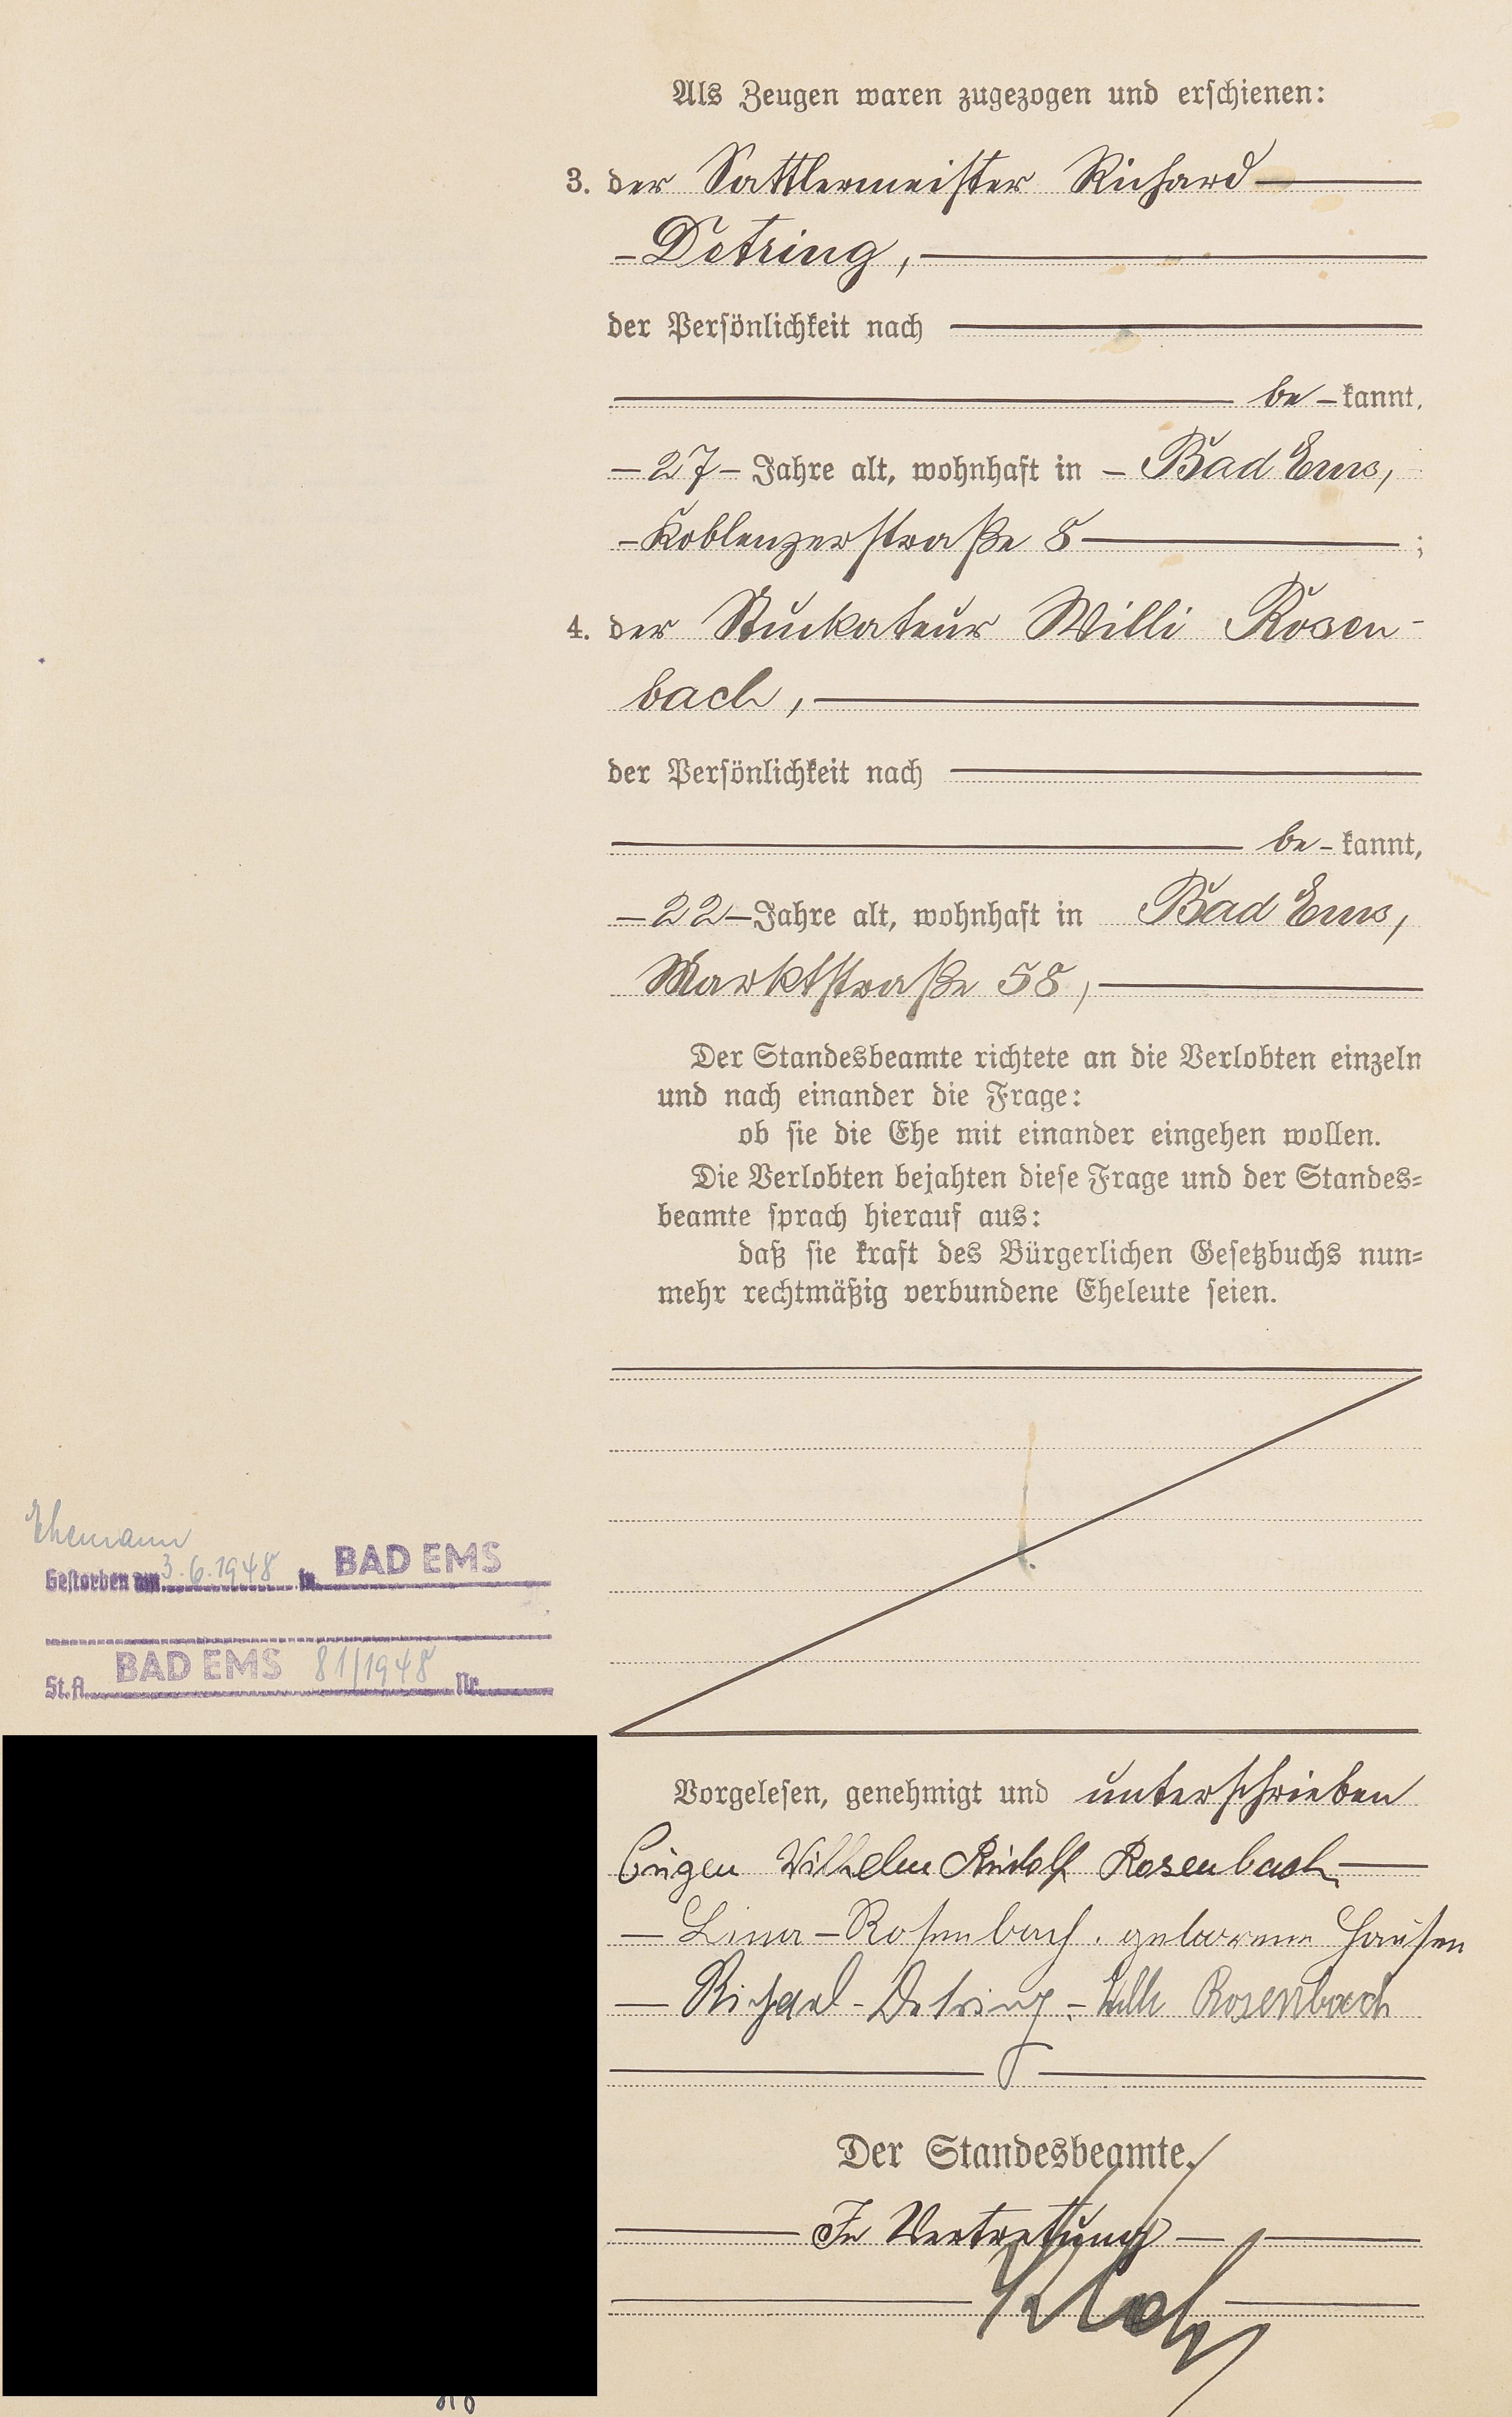 Als Zeugen waren zugezogen und erschienen:
3. der Sattlermeister Richard
Detring,
der Persönlichkeit nach
be-kannt,
27 Jahre alt, wohnhaft in Bad Ems,
Koblenzerstraße 8 ;
4. der Stuckateur Willi Rosen-
bach,
der Persönlichkeit nach
be-kannt,
22 Jahre alt, wohnhaft in Bad Ems,
Marktstraße 58,
Der Standesbeamte richtete an die Verlobten einzeln
und nach einander die Frage:
ob sie die Ehe mit einander eingehen wollen.
Die Verlobten bejahten diese Frage und der Standes-
beamte sprach hierauf aus:
daß sie kraft des Bürgerlichen Gesetzbuchs nun-
mehr rechtmäßig verbundene Eheleute seien.
Ehemann
Gestorben am 3.6.1948 in BAD EMS
St.A. BAD EMS 81/1948 Nr.
Vorgelesen, genehmigt und unterschrieben
Eugen Wilhelm Rudolf Rosenbach
Lina Rosenbach. geborene Hausen
Richard Detring - Willi Rosenbach
Der Standesbeamte.
In Vertretung